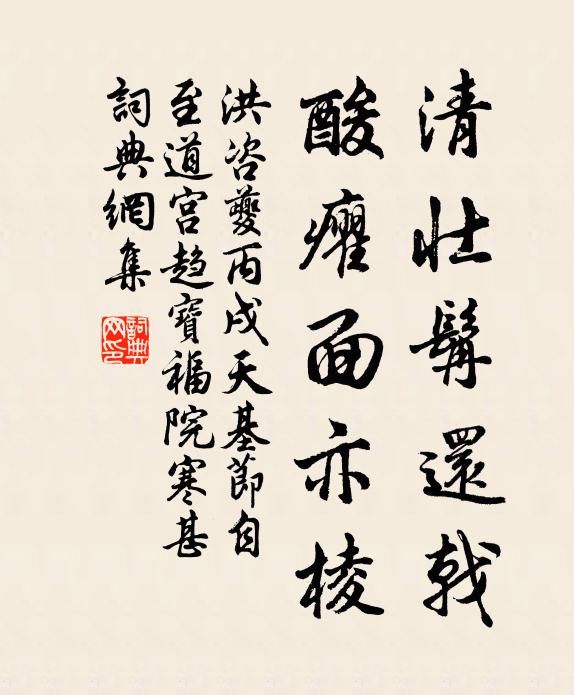 清壮髯還戟
酸癯面亦棱
洪咨夔丙戌天基節自
至道宫趋寶福院寒甚
詞典網集
詞典网印